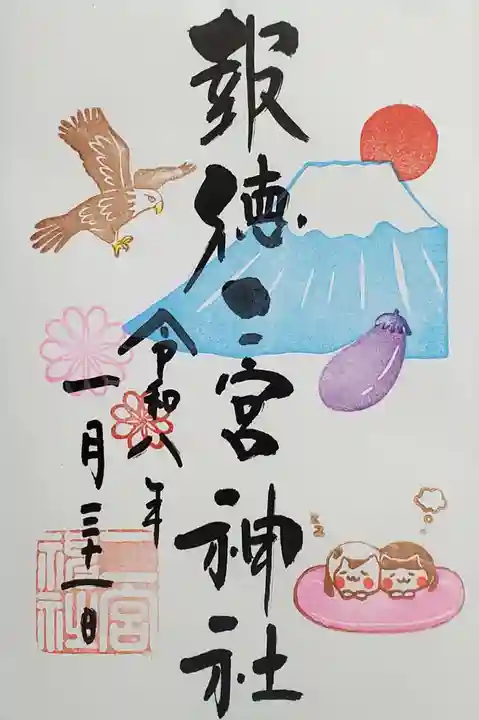 報徳二宮神社
令和八年
一月三十一日
二宮
神社
z z